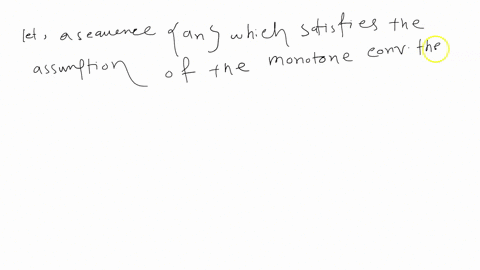 let, a sequence {an} which satisfies the
assumption of the monotone conv. the